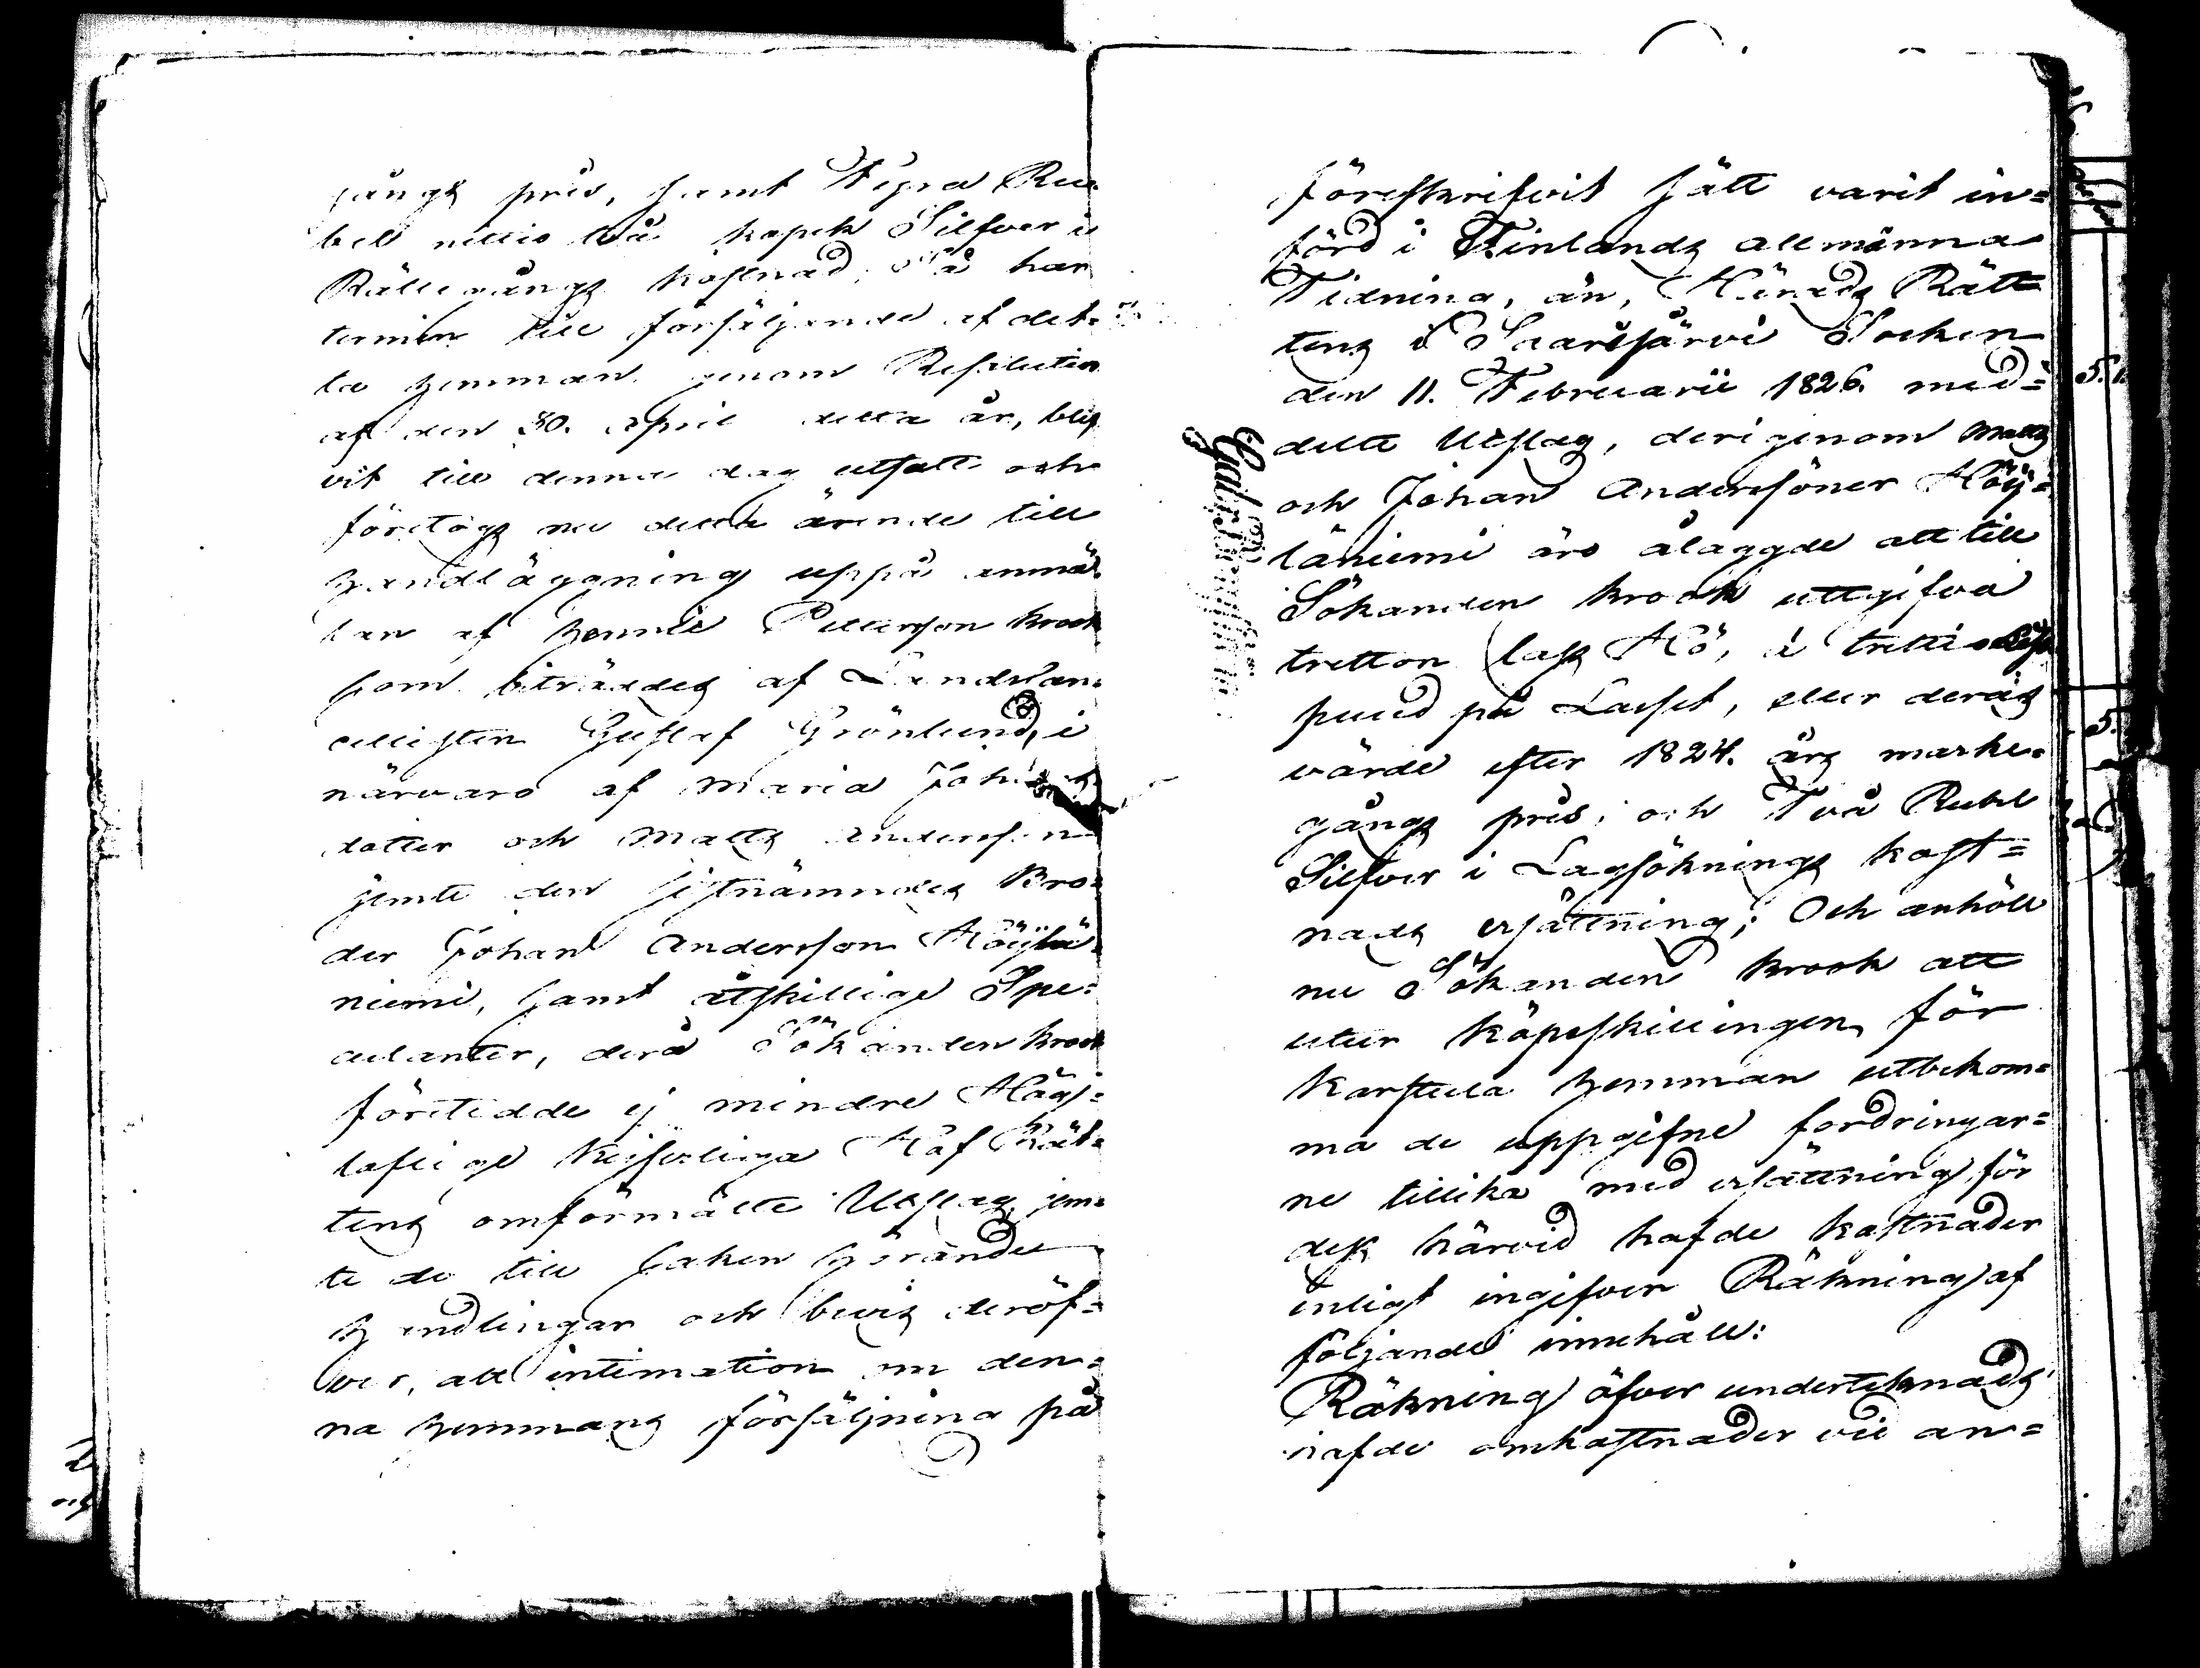 gångs pris, samt Fyra Ru-
bell nittio två kopek Silfver i
Rättegångs kostnad; Så har
termin till försäljande af det-
ta hemman genom Resolution
af den 30. April detta år, blif-
vit till denna dag utsatt och
företogs nu detta ärende till
handläggning uppå anmä-
lan af Pettersson Krook
som biträddes af Landskan-
cellisten Gustaf Grönlund, i
närvaro af Maria Johans-
dotter och Matts Andersson
jemte den sistnämndes Bro-
der Johan Andersson Höylä-
niemi, samt åtskillige Spe-
culanter, derå Sökanden Krook
företedde ej mindre Högl.
loflige Kejserliga Hof Rät-
tens omförmälte Utslag, jem-
te de till saken hörande
handlingar och bevis deröf-
ver, att intimation om den-
na hemmans försäljning på
föreskrifvit sätt varit in=
förd i Finlands allmänna
Tidning, än, Härads Rätt
tens i Saarijärvi Socken
den 11. Februarii 1826. med=
delte Utslag, derigenom Matts
och Johan Anderssöner Höy=
läniemi äro ålaggde att till
Sökanden Krook uttgifva
tretton lass Hö, à trettio Lis
pund på Lasset, eller deras
värde efter 1824. års marke=
gångs pris; och Två Rubel
Silfver i Lagsöknings kost=
nads ersättning; Och anhöll
nu Sökanden Krook att
utur köpeskillingen för
Karstula hemman utbekom=
ma de uppgifne fordringar=
ne tillika med ersättning för
dess härvid hafde kostnader
enligt ingifven Räkning af
följande innehåll:
Räkning öfver undertecknads
hafde omkostnader vid an=